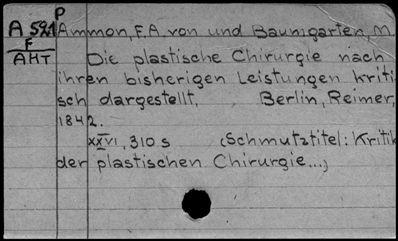 P
A 521 Ammon, F.A. von und Baumgarten, M.
F
AHT Die plastische Chirurgie nach
ihren bisherigen Leistungen kriti
sch dargestellt. Berlin, Reimer,
1842.
XXVI, 310 s (Schmutztitel: Kritik
der plastischen Chirurgie...)